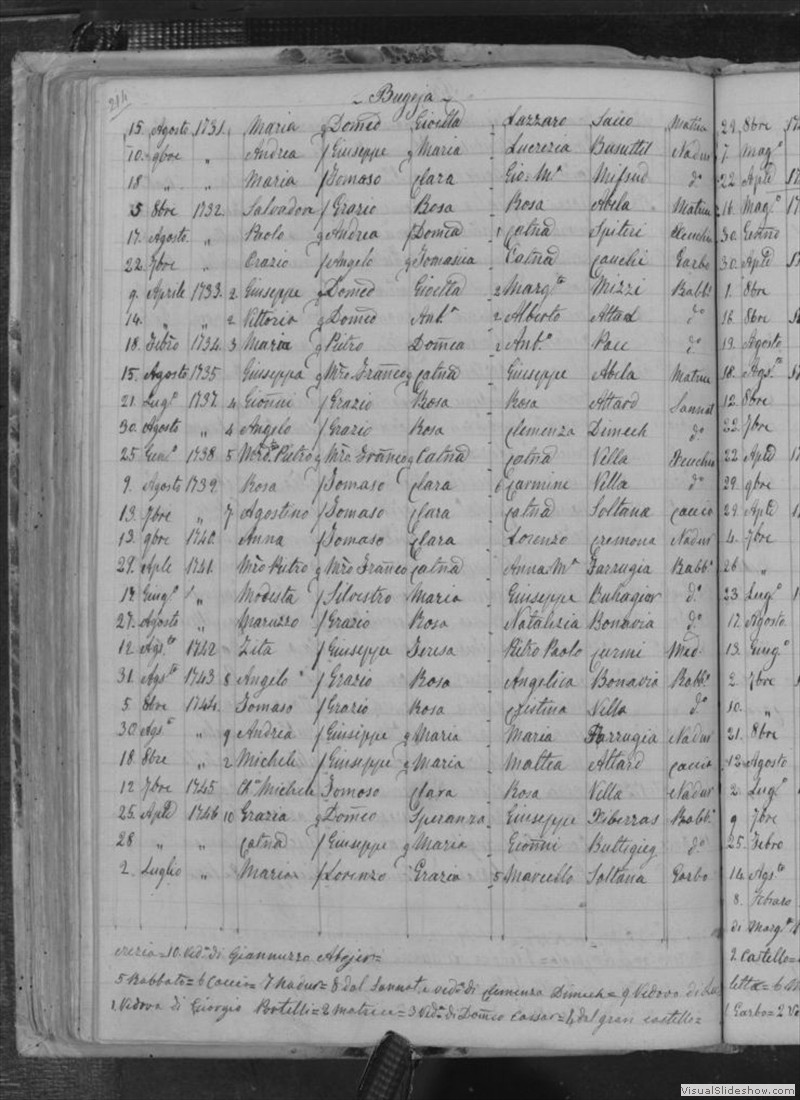 214
- Bugeja -
15. Agosto 1731. Maria g Domco Gioetta Lazzaro Saiio Matrice
10. 9bre " Andrea f Giuseppe g Maria Lucrezia Busuttil Nadur
18 " " Maria f Tomaso Clara Gio. Ma Mifsud do
5 8bre 1732. Salvadore f Grazio Rosa Rosa Abela Matrice
17. Agosto " Paolo g Andrea f Domca 1 Catna Spiteri
22. 7bre " Orazio f Angelo g Tomasia Catna Cauchi Garbo
9. Aprile 1733. 2 Giuseppe g Domco Gioetta 2 Margta Mizzi Rabbo
14. " " 2 Vittorio g Domco Anta 2 Alberto Attard do
18. Febro 1734. 3 Maria g Pietro Domca 2 Anto Pace do
15. Agosto 1735 Giuseppa g Mro Franco g Catna Giuseppe Abela Matrice
21. Lugo 1737. 4 Gionni f Grazio Rosa Rosa Attard Sannat
30. Agosto " 4 Angelo f Grazio Rosa Clemenza Dimech do
25. Geno 1738 5 Pietro g Mro Franco g Catna Catna Vella
9. Agosto 1739. Rosa f Tomaso Clara 6 Carmine Vella do
13. 7bre " 7 Agostino f Tomaso Clara Catna Soltana Caccia
13. 9bre 1740. Anna f Tomaso Clara Lorenzo Cremona Nadur
29. Aple 1741. Mro Pietro g Mro Franco Catna Anna Ma Farrugia Rabbo
17 Giugo " Modesta f Silvestro Maria Giuseppe Buhagiar do
27. Agosto " Maruzzo f Grazio Rosa Natalizia Bonavia do
12. Agsto 1742 Zita f Giuseppe Teresa Pietro Paolo Curmi Med.
31. Agsto 1743 8 Angelo f Grazio Rosa Angelica Bonavia Rabbo
5 8bre 1744. Tomaso f Grazio Rosa Cristina Vella do
30. Ags. " 9 Andrea f Giuseppe g Maria Maria Farrugia Nadur
18. 8bre " 2 Michele f Giuseppe g Maria Mattea Attard Caccia
12 7bre 1745 Michele Tomoso Clara Rosa Vella Nadur
25. Aple 1746 10 Grazia g Domco Speranza Giuseppe Xiberras Rabbo
28 " " Catna f Giuseppe g Maria Gionni Buttigieg do
2. Luglio " Maria f Lorenzo Grazia 5 Marcello Soltana Garbo
crezia=10. Vida di Giannuzzo Abejer=
5 Rabbato=6 Caccia=7 Nadur=8 dal Sannat e vida di Clemenza Dimech=9 Vedova di
1 Vedova di Giorgio Portelli=2 Matrice=3 Vida di Domco Cassar=4 del gran Castello=
29. 8bre 17
7. Mago
22. Aple 17
16. Mago 17
30. Genaro
30. Aple 17
1. 8bre
16. 8bre 1
19. Agosto
18. Agsto 17
12. 8bre
22. 7bre
22. Aple 17
29. 9bre
29. Aple 1
4. 7bre
26. "
23. Lugo 1
17. Agosto
13. Giugo
2. 7bre 1
10. "
21. 8bre
12. Agosto
2. Lugo 1
9 7bre
25. Febro
14. Agsto
8. Febraro
di Marga
2 Castello=
letta=6
1 Garbo=2 Vi
VisualSlideshow.com